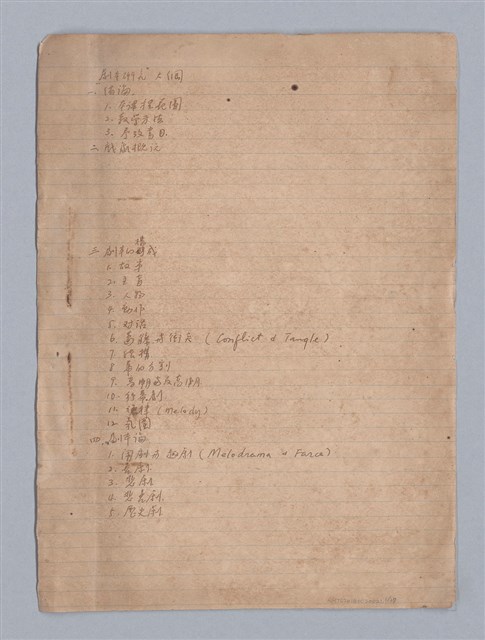 劇本研究 大綱
一、緒論
1. 本課綜範圍
2. 教學方法
3. 參攷書目
二、戲劇概說
三、劇本的構成
1. 故事
2. 主旨
3. 人物
4. 動作
5. 對話
6. 葛藤與鬥爭 (Conflict & Tangle)
7. 結構
8. 幕的分割
9.
10. 獨幕劇
11. (Melody)
12. 氛圍
四、劇作論
1. 鬧劇與趣劇 (Melodrama & Farce)
2. 喜劇
3. 悲劇
4. 悲喜劇
5. 歷史劇